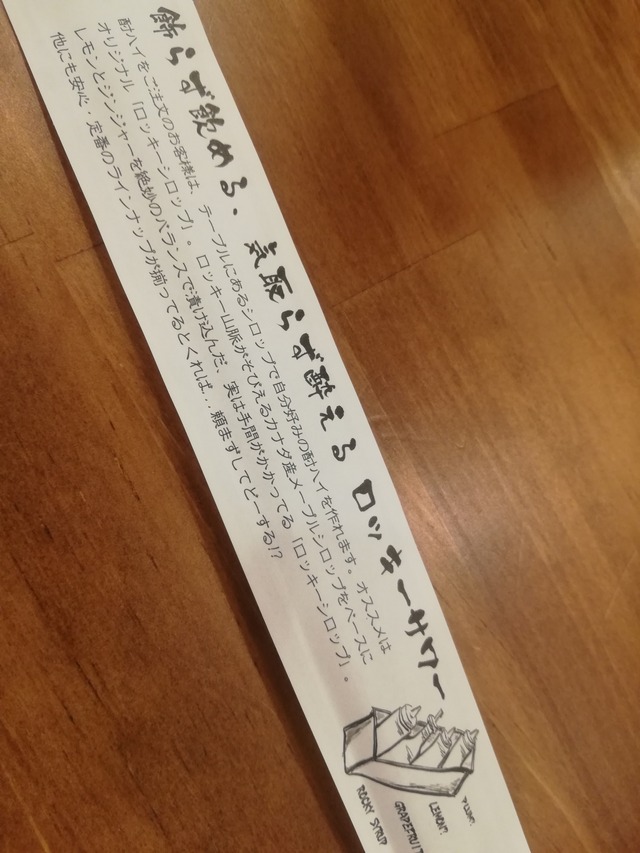 飾らず飲める、気取らず酔える ロッキーサワー
酎ハイをご注文のお客様は、テーブルにあるシロップで自分好みの酎ハイを作れます。オススメは
オリジナル「ロッキーシロップ」。ロッキー山脈がそびえるカナダ産メープルシロップをベースに
レモンとジンジャーを絶妙のバランスで漬け込んだ、実は手間がかかってる「ロッキーシロップ」。
他にも安心・定番のラインナップが揃ってるとくれば…頼まずしてどーする!?
ROCKY SYRUP
GRAPEFRUIT
LEMON